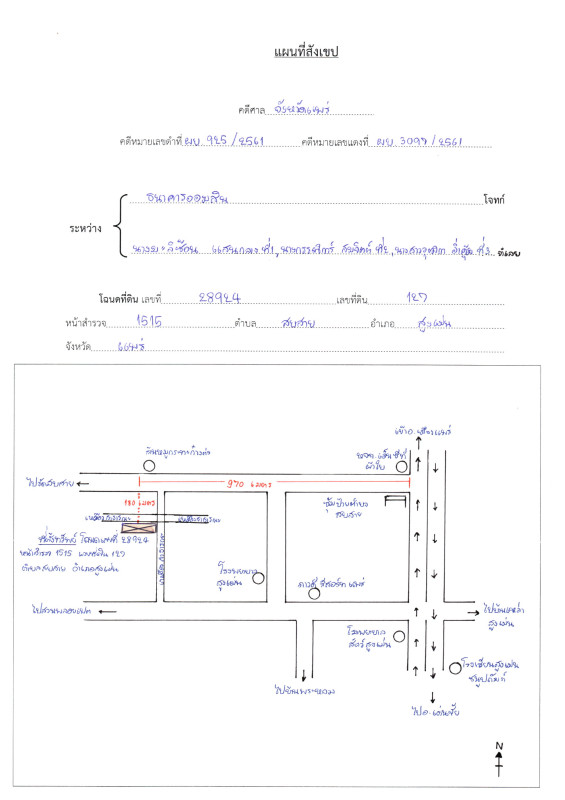 แผนที่สังเขป
คดีศาล จังหวัดแพร่
คดีหมายเลขดำที่ ผบ. 925/2561 คดีหมายเลขแดงที่ ผบ. 3097/2561
ธนาคารออมสิน โจทก์
ระหว่าง
แสนกลาง ที่1, ที่2, ที่3 จำเลย
โฉนดที่ดิน เลขที่ 28924 เลขที่ดิน 127
หน้าสำรวจ 1515 ตำบล สบสาย อำเภอ สูงเม่น
จังหวัด แพร่
เข้า อ.เมืองแพร่
970 เมตร
ไปวัดสบสาย
180 เมตร
ซุ้มป้ายตำบล
สบสาย
ที่ตั้งทรัพย์ โฉนดเลขที่ 28924
หน้าสำรวจ 1515 เลขที่ดิน 127
ตำบลสบสาย อำเภอสูงเม่น
โรงพยาบาล
สูงเม่น
รีสอร์ท แพร่
ไปบ้านเหล่า
สูงเม่น
โรงพยาบาล
สัตว์สูงเม่น
โรงเรียนสูงเม่น
ชนูปถัมภ์
ไปบ้านพระหลวง
ไป อ.เด่นชัย
N